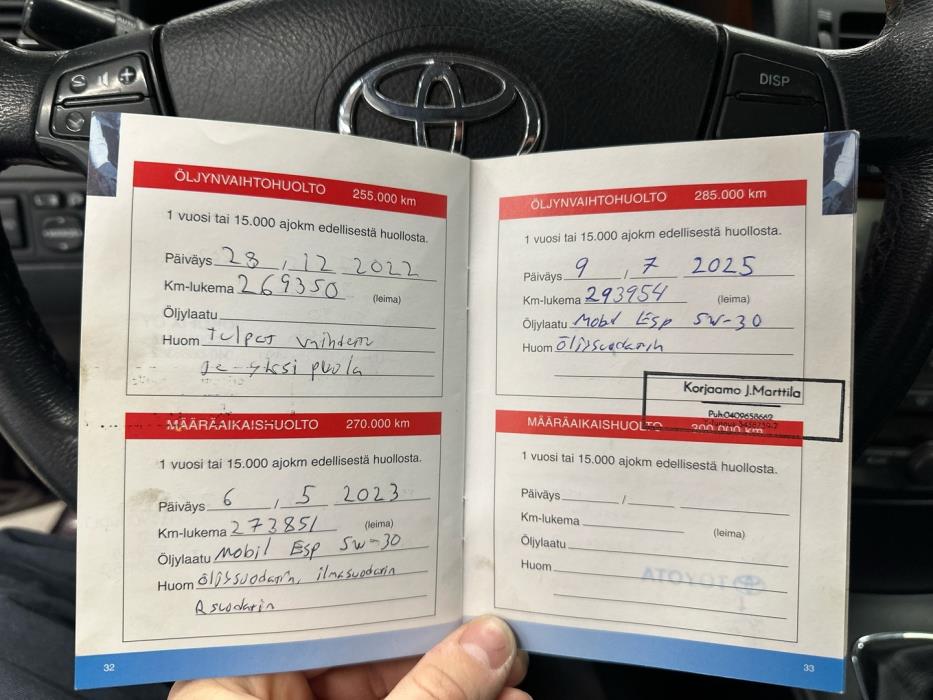 DISP
ÖLJYNVAIHTOHUOLTO 255.000 km
1 vuosi tai 15.000 ajokm edellisestä huollosta.
Päiväys 28 / 12 2022
Km-lukema 269350 (leima)
Öljylaatu
Huom tulpat vaihdettu
ja yksi puola
MÄÄRÄAIKAISHUOLTO 270.000 km
1 vuosi tai 15.000 ajokm edellisestä huollosta.
Päiväys 6 / 5 2023
Km-lukema 273851 (leima)
Öljylaatu Mobil Esp 5W-30
Huom öljysuodatin, ilmasuodatin
R suodatin
32
ÖLJYNVAIHTOHUOLTO 285.000 km
1 vuosi tai 15.000 ajokm edellisestä huollosta.
Päiväys 9 / 7 2025
Km-lukema 293954 (leima)
Öljylaatu Mobil Esp 5W-30
Huom öljysuodatin
Korjaamo J.Marttila
Puh.0409658662
MÄÄRÄAIKAISHUOLTO 300.000 km
1 vuosi tai 15.000 ajokm edellisestä huollosta.
Päiväys /
Km-lukema (leima)
Öljylaatu
Huom
TOYOTA
33